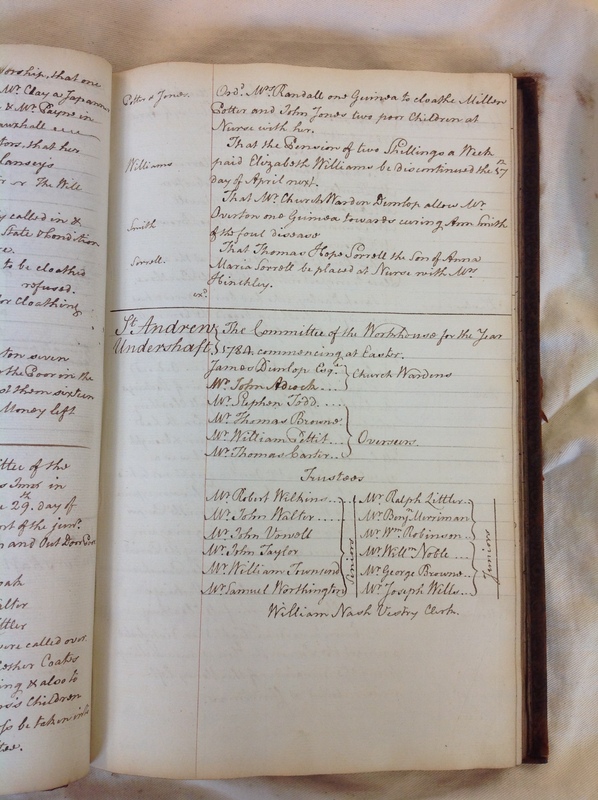 orship, that one
Mr. Clay a Japanner
& Mr. Payne in
tors, that her
lansey's
or the Will
y called in &
State & Condition
to be cloathed
refused.
for Cloathing
ton seven
the Poor in the
of them sixteen
Money left
ttee of the
29th. day of
ort of the
alter
ttler
were called over.
Coats
ing & also to
Children
be taken into
tee.
Potter & Jones. Ord.d Mr. Randall one Guinea to cloathe Millen
Potter and John Jones two poor Children at
Nurse with her.
That the Pension of two Shillings a Week
Williams paid Elizabeth Williams be discontinued the 17th
day of April next.
That Mr. Church Warden Dunlop allow Mr.
Smith Overton one Guinea towards curing Ann Smith
of the foul disease
That Thomas Hope Sorrell the Son of Anna
Sorrell. Maria Sorrell be placed at Nurse with Mrs
Hinckley.
exd.
St. Andrew Undershaft, } The Committee of the Workhouse for the Year
1784, commencing at Easter.
James Dunlop Esqr. } Church Wardens
Mr. John Adcock....
Mr. Stephen Todd....
Mr. Thomas Browne
Mr. William Pettit... } Overseers.
Mr. Thomas Carter...
Trustees
Mr. Robert Wilkins... Mr. Ralph Littler...
Mr. John Walter.... Mr. Benjn. Merriman
Mr. John Vowell Mr. Wm. Robinson..
Mr. John Taylor Seniors Mr. Willm. Noble... Juniors
Mr. William Townsend Mr. George Browne..
Mr. Samuel Worthington Mr. Joseph Wills..
William Nash Vestry Clerk.